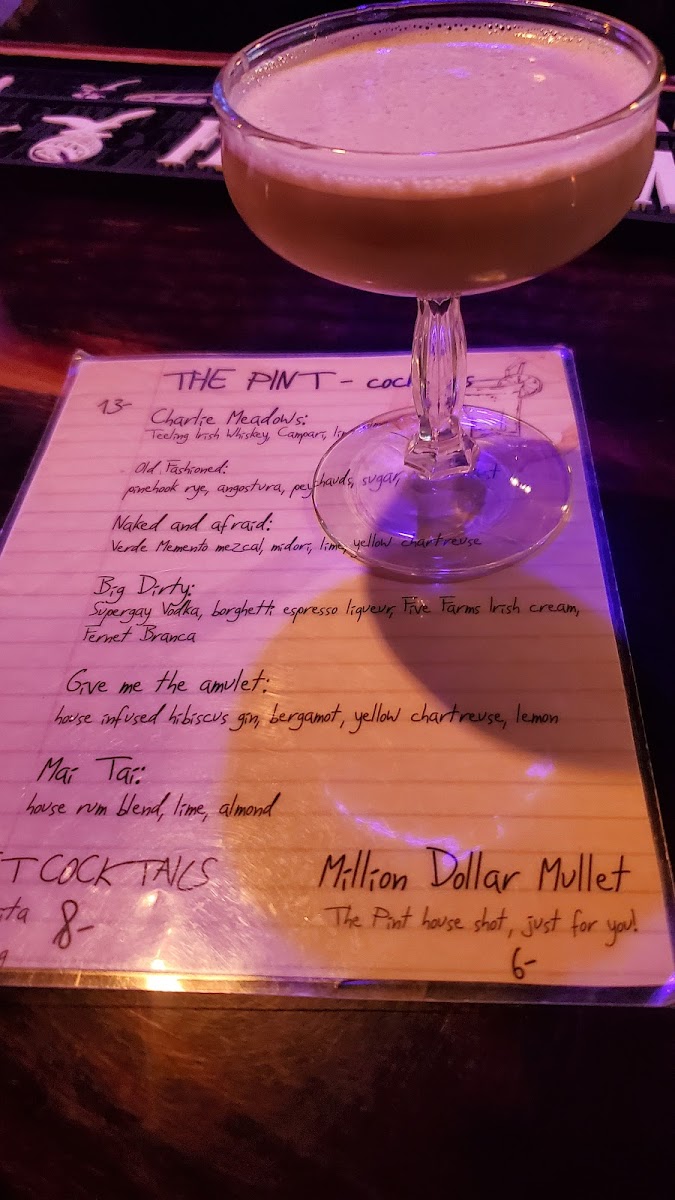 THE PINT - 
13-
Charlie Meadows:
Teeling Irish Whiskey, Campari,
Old Fashioned:
pinehook rye, angostura, peychauds, sugar,
Naked and afraid:
Verde Memento mezcal, midori, lime, yellow chartreuse
Big Dirty:
Supergay Vodka, borghetti espresso liqueur, Five Farms Irish cream,
Fernet Branca
Give me the amulet:
house infused hibiscus gin, bergamot, yellow chartreuse, lemon
Mai Tai:
house rum blend, lime, almond
COCKTAILS
8-
Million Dollar Mullet
The Pint house shot, just for you!
6-